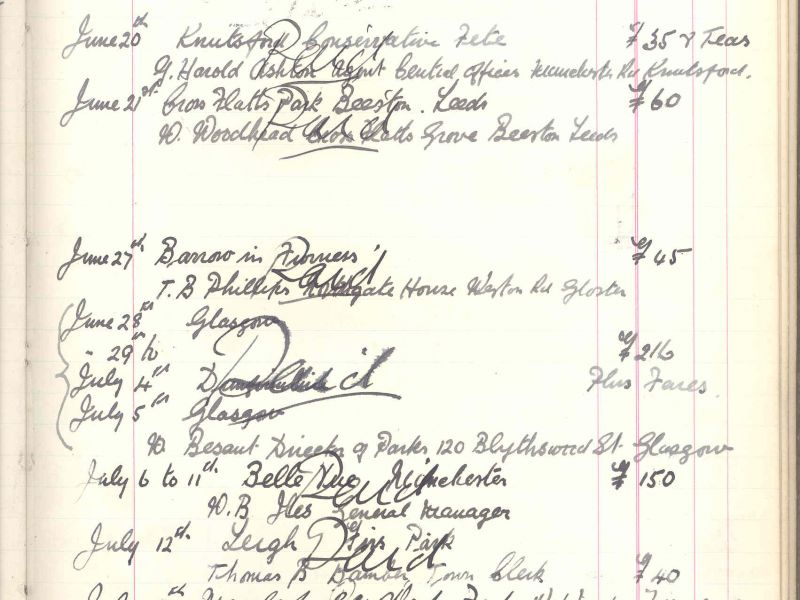 June 20th Knutsford Conservative Fete £35 & Teas
G. Harold Ashton Agent Central Offices Manchester Rd Knutsford.
Paid
June 21st Cross Flatts Park Beeston. Leeds £60
W. Woodhead Cross Flatts Grove Beeston Leeds
Paid
June 27th Barrow in Furness £45
T. B Phillips House Weston Rd Gloster
Paid
June 28th Glasgow
" 29th to £216
July 4th Plus Fares.
July 5th Glasgow
Paid
W. Besant Director of Parks 120 Blythswood St. Glasgow
July 6 to 11th. Belle Vue Manchester £150
W. B. Iles General Manager
Paid
July 12th Leigh Firs Park
Thomas B Town Clerk £40
Paid